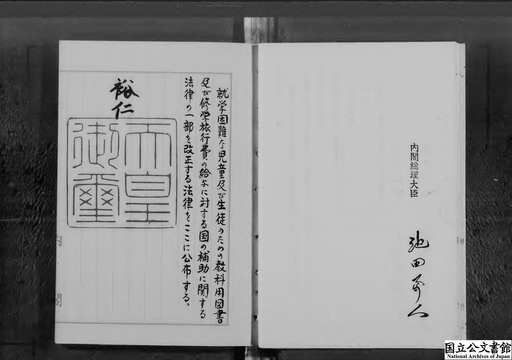 就学困難な児童及び生徒のための教科用図書
及び修学旅行費の給与に対する国の補助に関する
法律の一部を改正する法律をここに公布する。
裕仁
天皇
御璽
内閣総理大臣
池田勇人
国立公文書館
National Archives of Japan